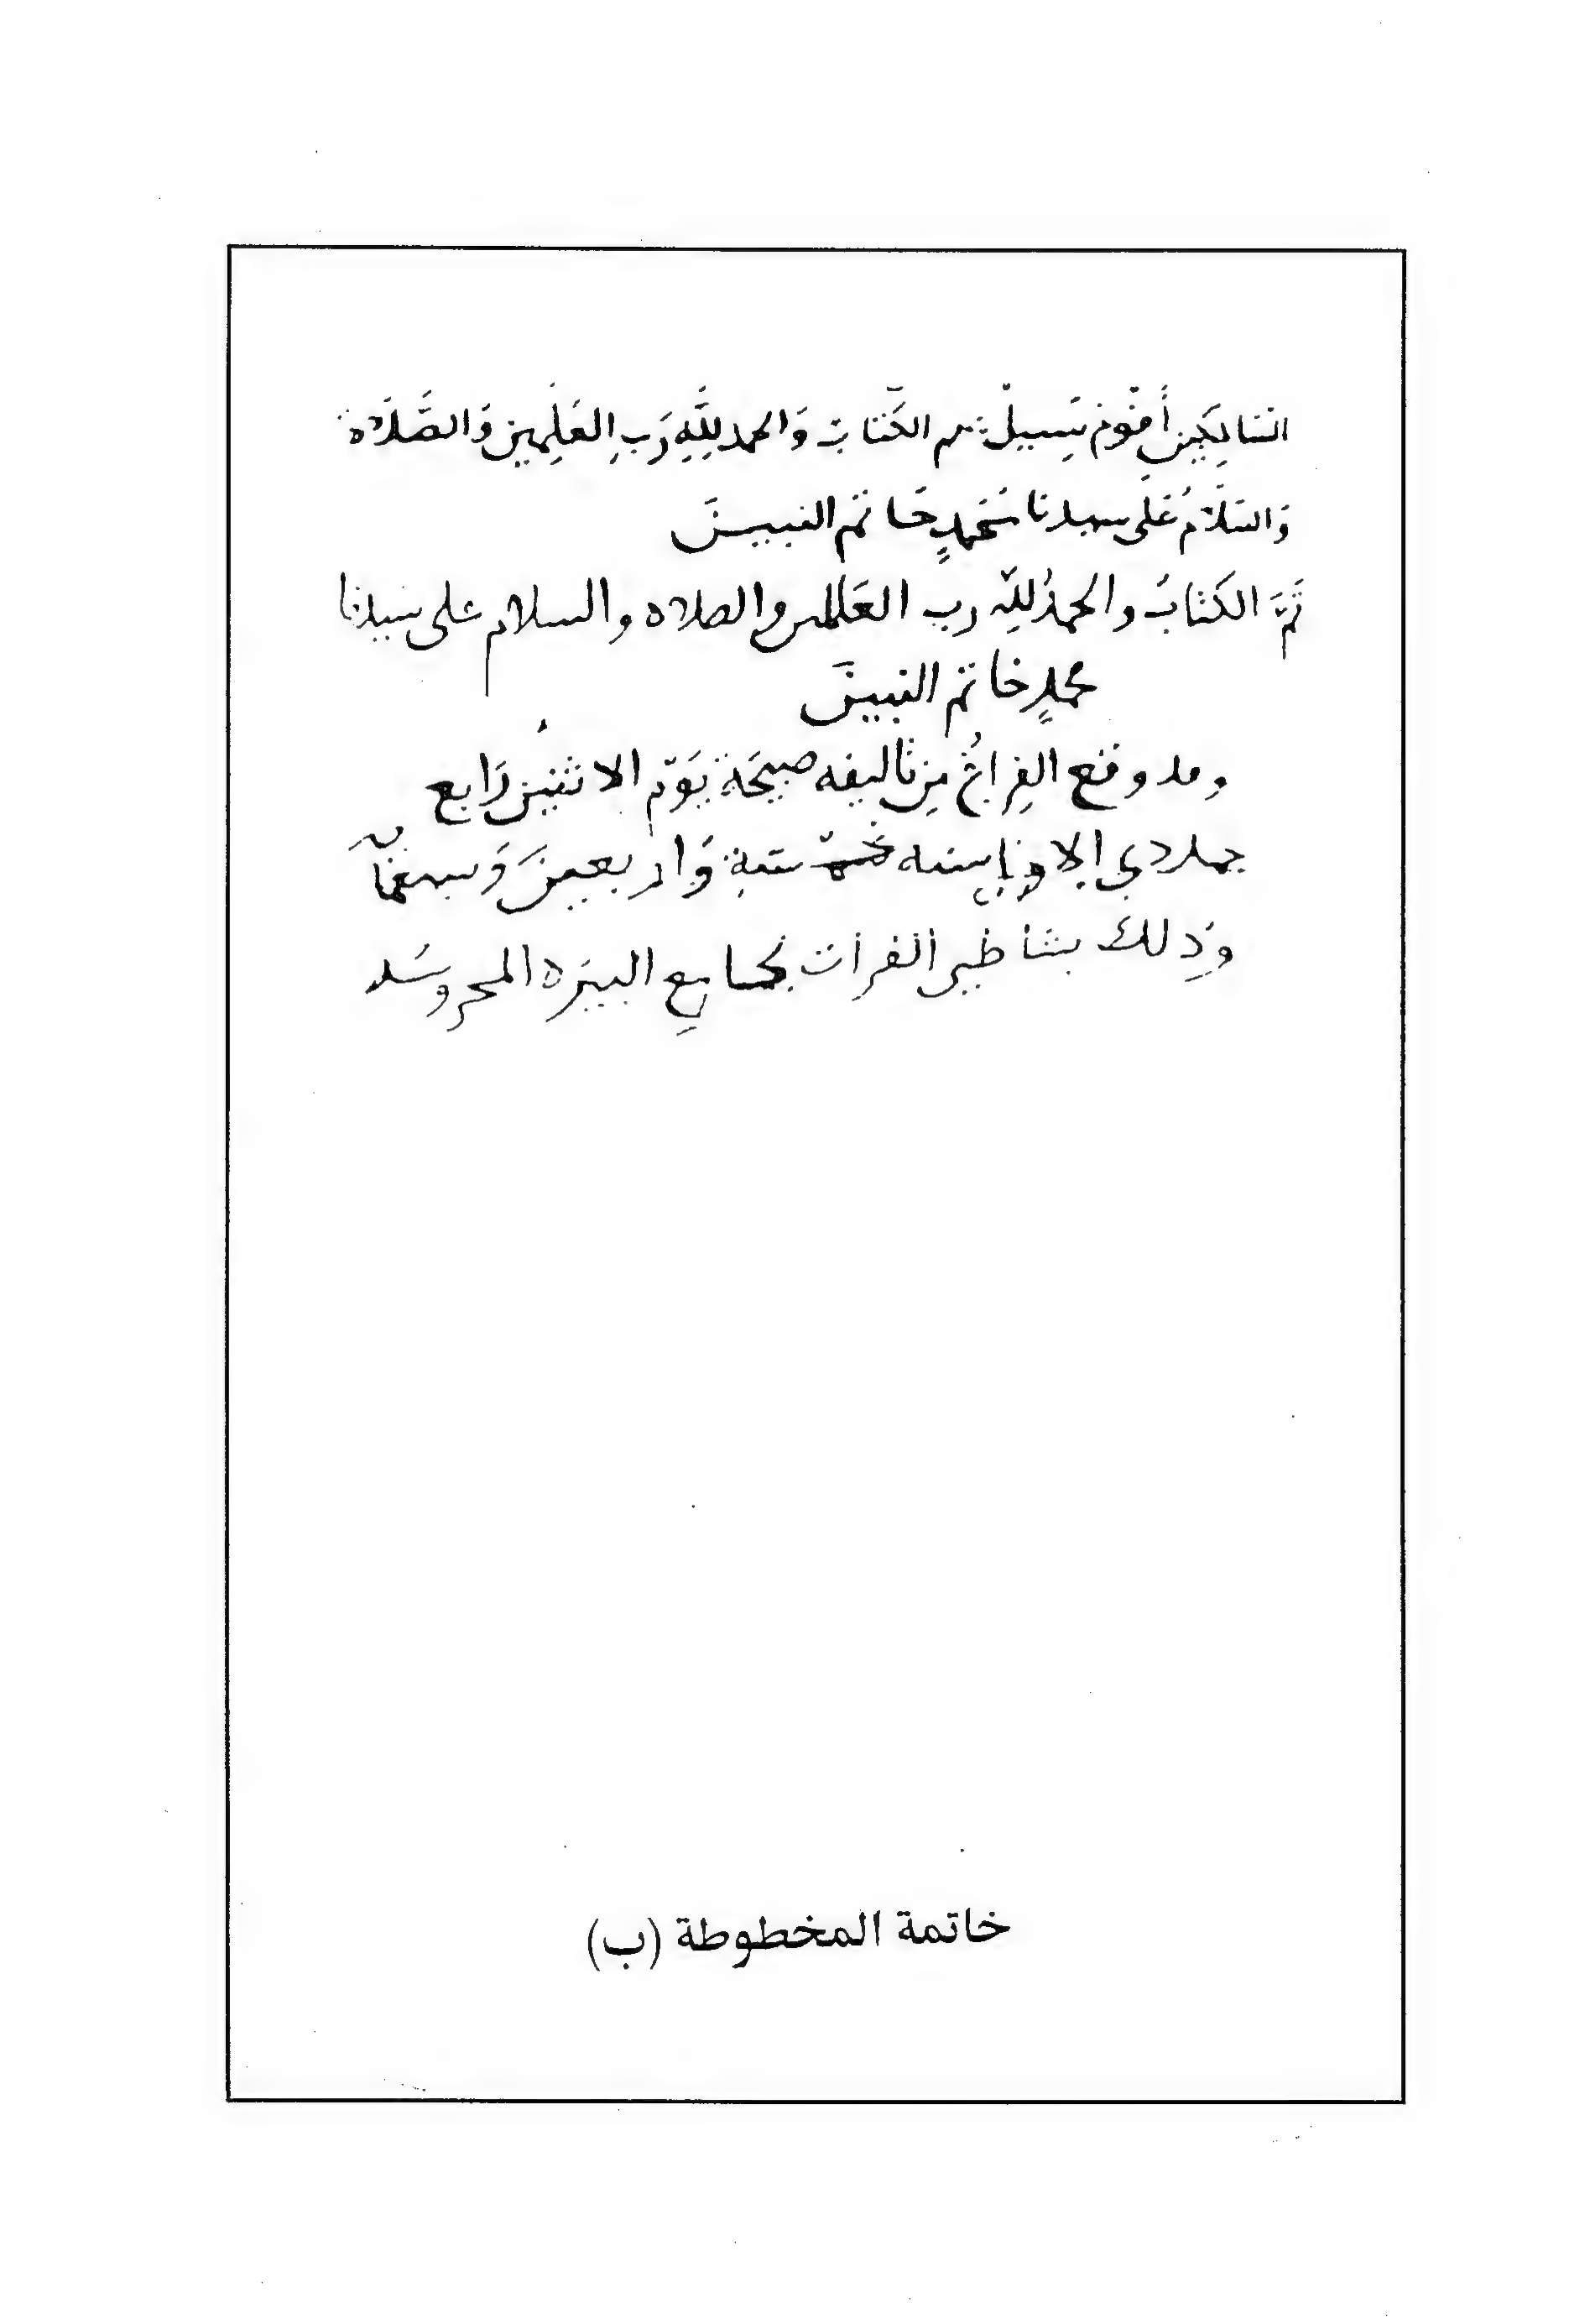 السَّالِكِينَ أَقْوَمَ سَبِيلْ تم الكِتَابُ وَالحمد لِلَّهِ رَبِ العَلَمِين وَالصَّلَاة
وَالسَّلَامُ عَلَى سيدنا مُحَمدٍ خَاتم النبيينَ
تمَّ الكِتَابُ والحمدُ للهِ رب العَالمين والصلاه والسلام على سيدنا
محمدٍ خاتم النبيينَ
وقد وقع الفِراغُ مِن تأليفه صبيحَة يَوْم الاثنين رَابع
جمادى الاولى سنه ستةِ وَاربعينَ وَسبعمائة
وَذلك بشاطى الفراتِ بجامعِ البيره المحروسَه
خاتمة المخطوطة (ب)